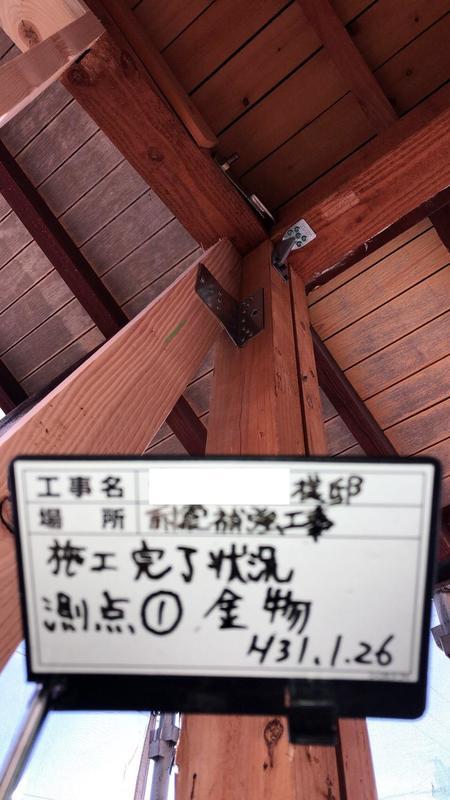 工事名 様邸
場所 耐震補強工事
施工完了状況
測点① 金物
H31.1.26